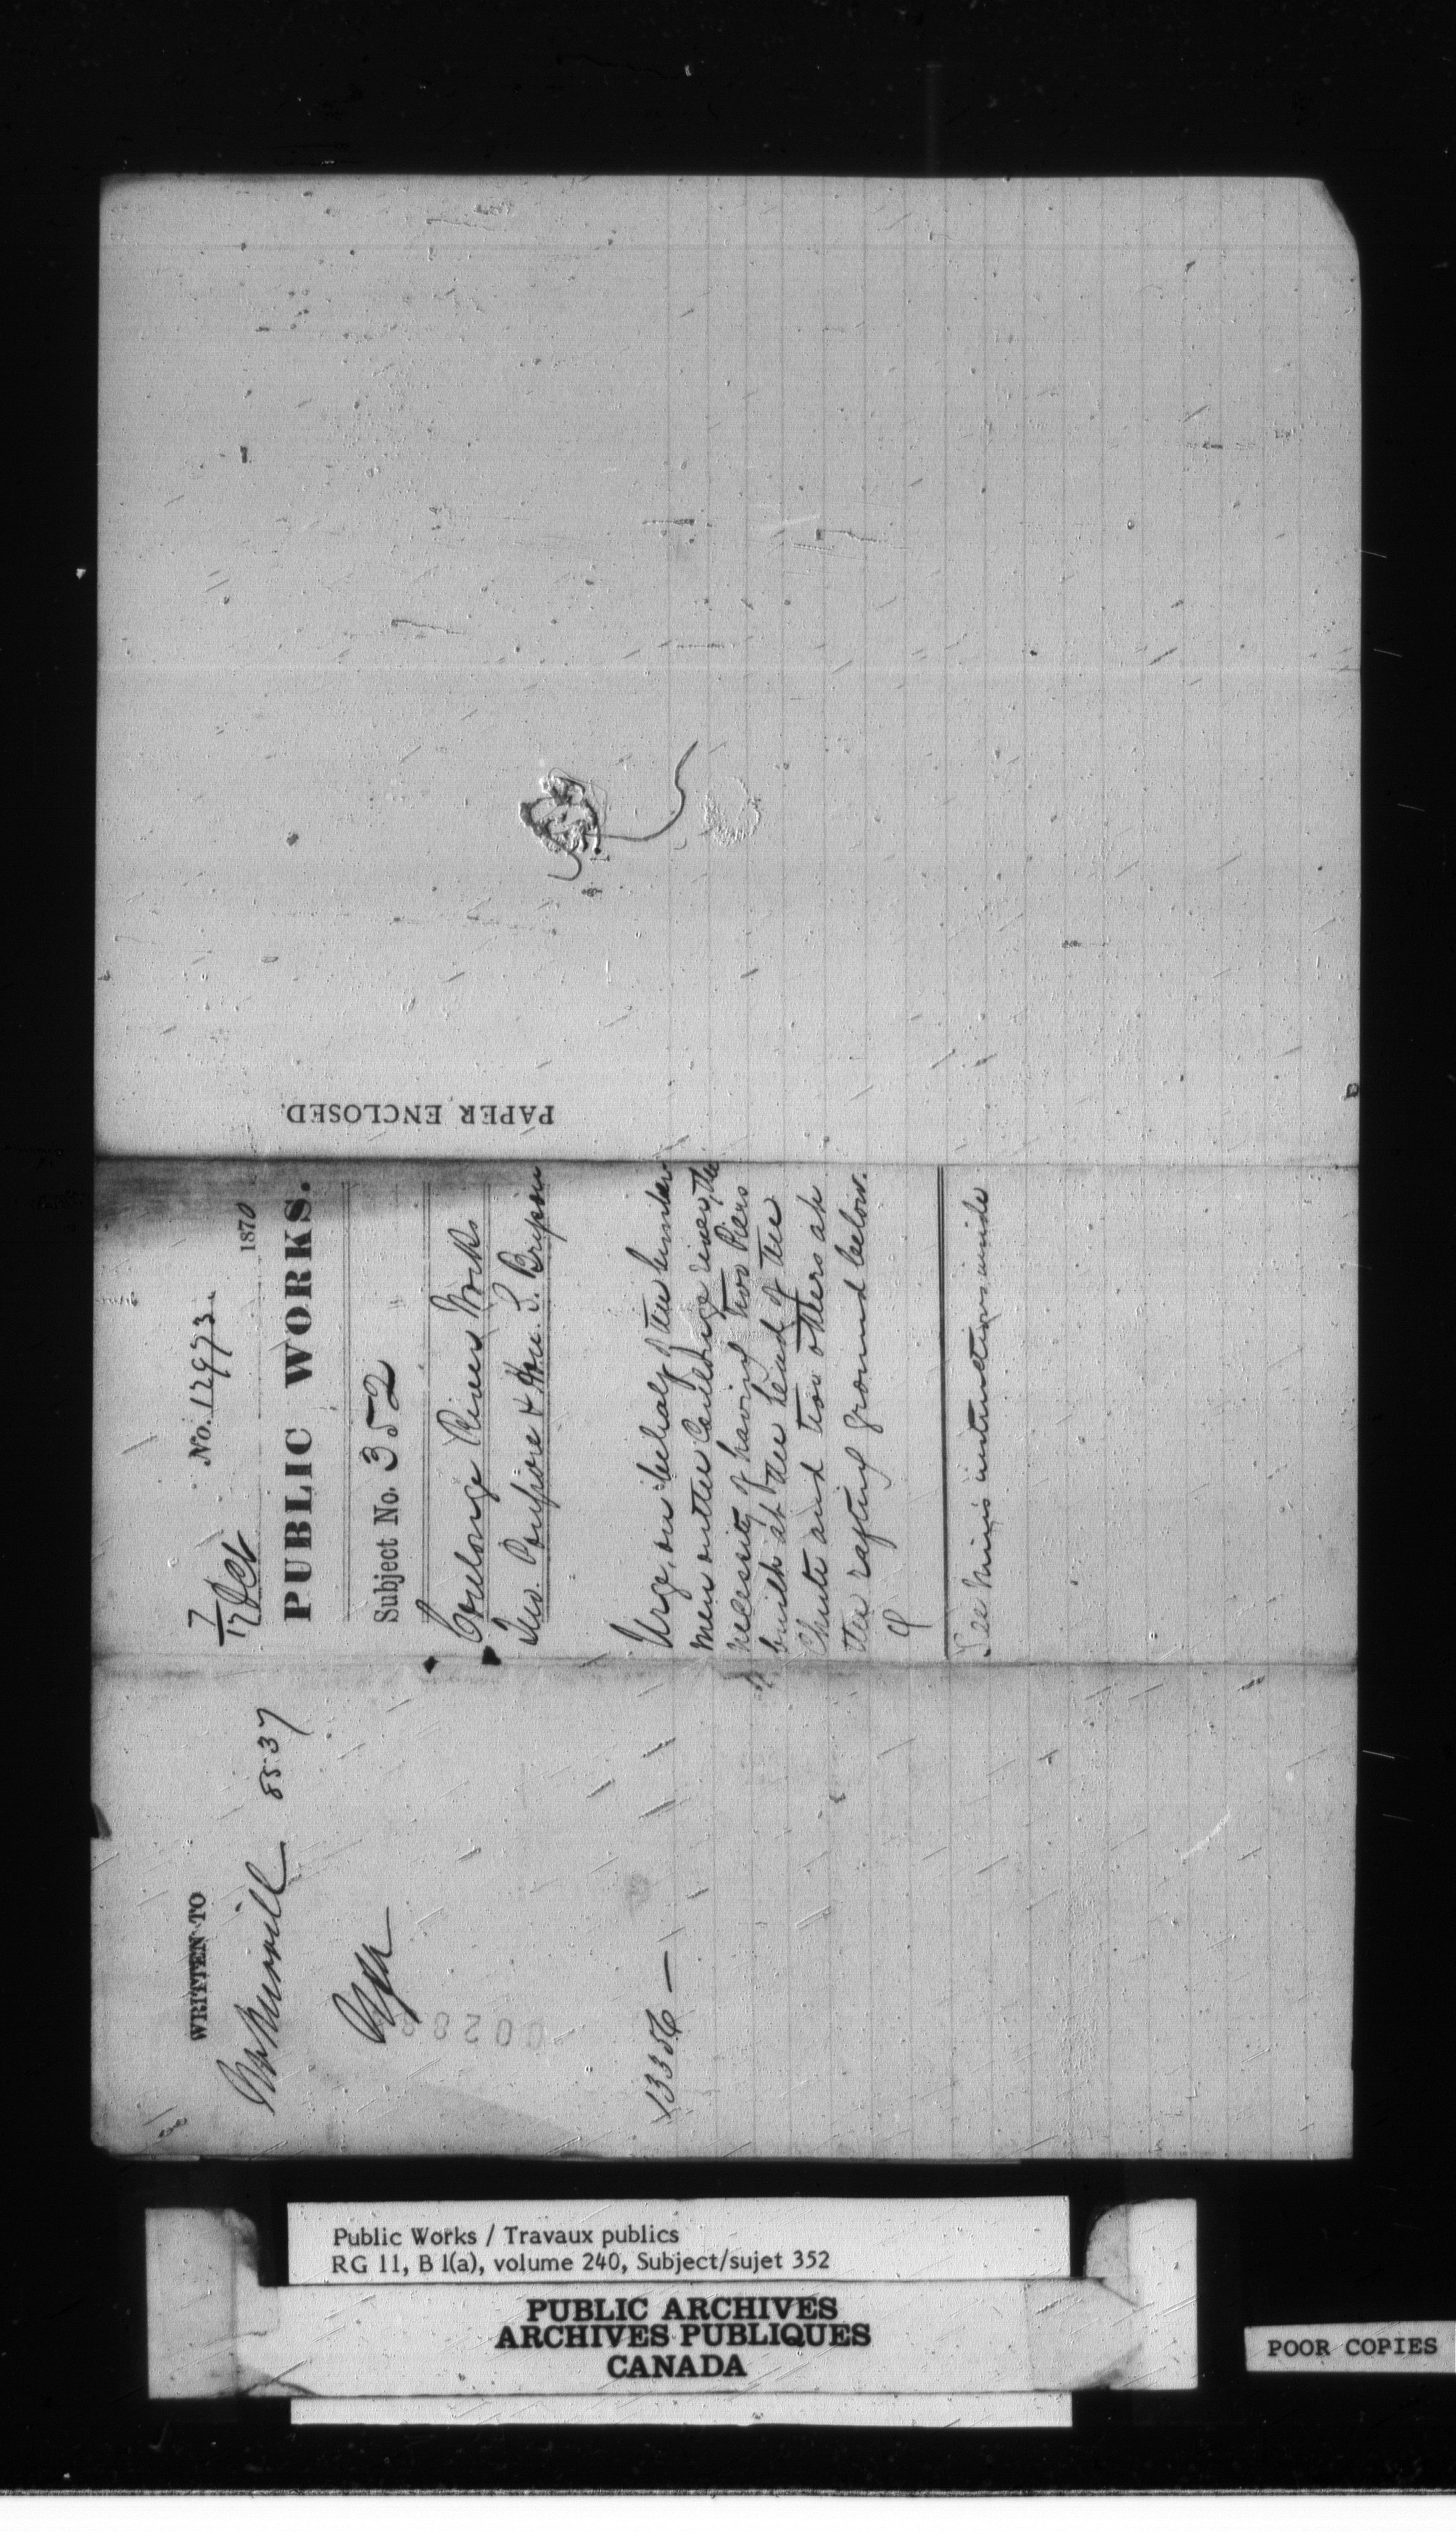 PAPER ENCLOSED.
7/12 Oct No. 12973. 1870
PUBLIC WORKS.
Subject No. 352
Coulonge River Works
Poupore & Hon. Bryson
Urge, on behalf of the lumber
men on the Coulonge river, the
necessity of having two Piers
built at the head of the
Chute and two others at
the rafting ground below.
See Minis instructions inside
WRITTEN TO
Mr Merrill 8537
13356 —
Public Works / Travaux publics
RG 11, B 1(a), volume 240, Subject/sujet 352
PUBLIC ARCHIVES
ARCHIVES PUBLIQUES
CANADA
POOR COPIES